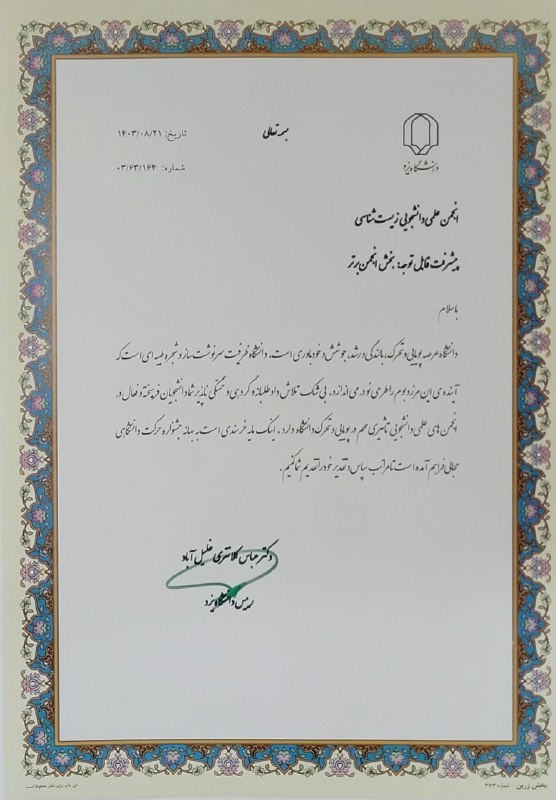 بسمه تعالی
تاریخ: ۱۴۰۳/۰۸/۲۱
شماره: ۰۳/۶۳/۱۶۴
دانشگاه یزد
انجمن علمی دانشجویی زیست شناسی
پیشرفت قابل توجه: بخش انجمن برتر
باسلام
دانشگاه عرصه پویایی و تحرک، بالندگی و رشد، جوشش و خودباوری است. دانشگاه ظرفیت سرنوشت ساز و شجره طیبه ای است که
آینده ی این مرز و بوم را طرحی نو در می اندازد. بی شک تلاش داوطلبانه و گروهی و خستگی ناپذیر شما دانشجویان فرهیخته و فعال در
انجمن های علمی دانشجویی تاثیری مهم در پویایی و تحرک دانشگاه دارد. اینک مایه خرسندی است به بهانه جشنواره حرکت دانشگاهی
مجالی فراهم آمده است تا مراتب سپاس و تقدیر خود را تقدیم شما کنیم.
دکتر عباس کلانتری خلیل آباد
رییس دانشگاه یزد
پخش زرین - شماره ۳۷۳
حق چاپ برای ناشر محفوظ است